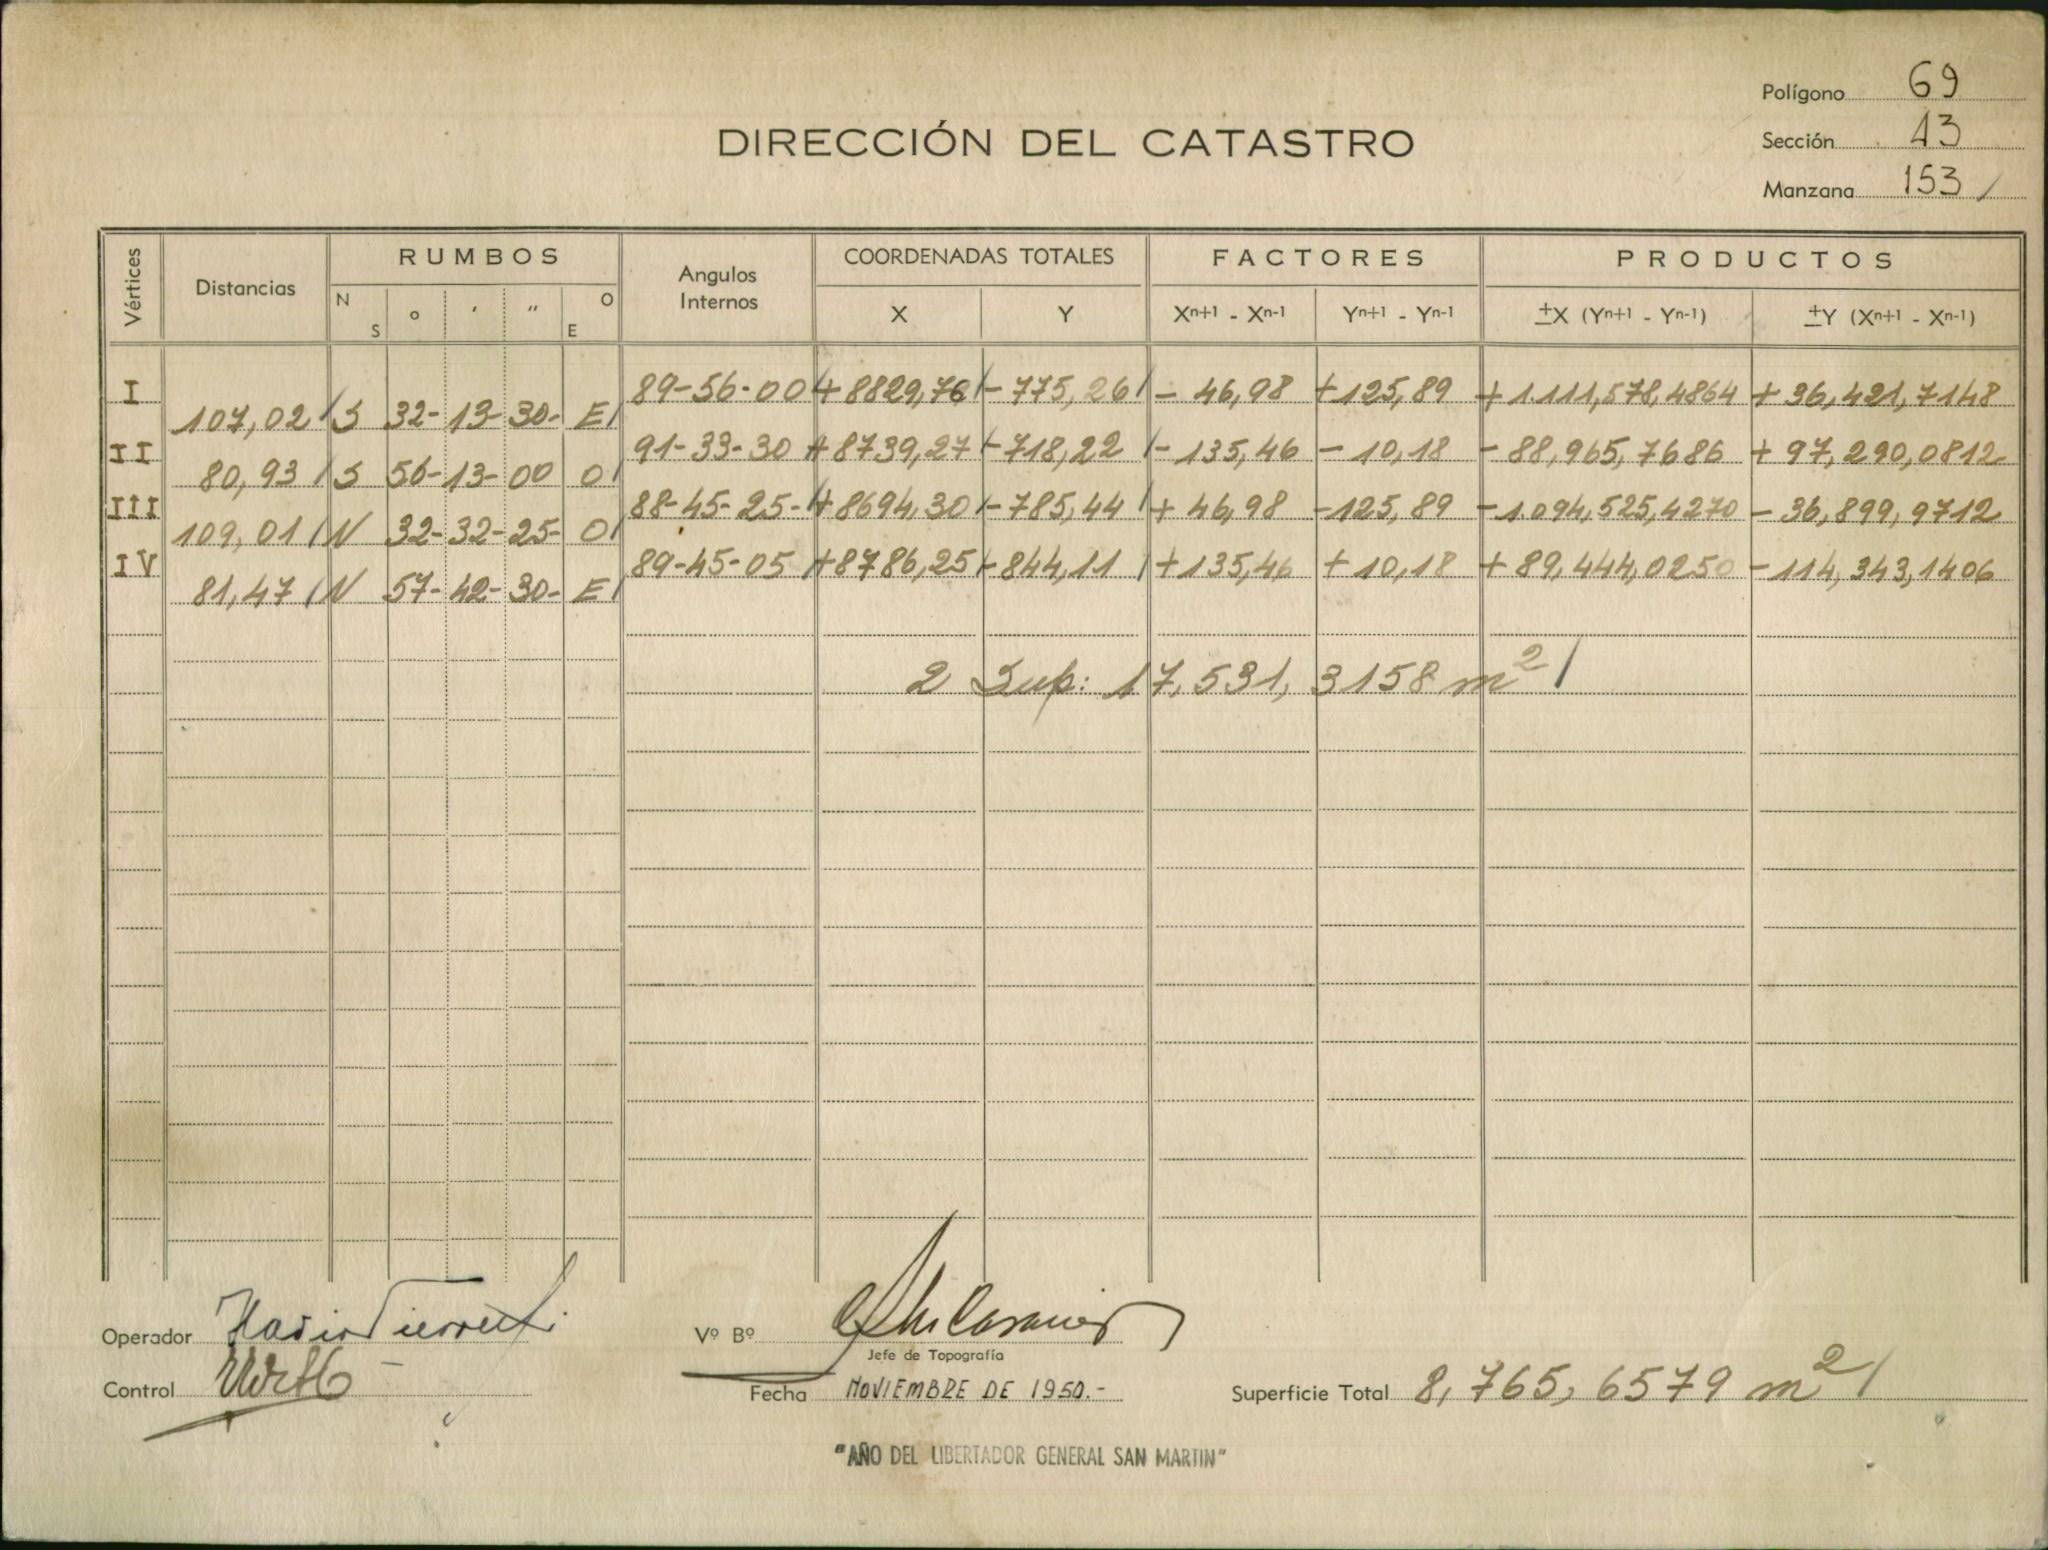 Polígono 69
DIRECCIÓN DEL CATASTRO
Sección 43
Manzana 153 /
Vértices Distancias RUMBOS Angulos Internos COORDENADAS TOTALES FACTORES PRODUCTOS
N S ° ' " O E X Y Xn+1 - Xn-1 Yn+1 - Yn-1 ±X (Yn+1 - Yn-1) ±Y (Xn+1 - Xn-1)
I 89-56-00 +8829,76/ -775,26/ - 46,98 +125,89 +1.111,578,4864 + 36,421,7148
107,02/ S 32- 13- 30- E/
II 91-33-30 +8739,27 /-718,22 /-135,46 - 10,18 - 88,965,7686 + 97,290,0812
80,93 / S 56- 13- 00 O/
III 88-45-25- /+8694,30 /-785,44 /+ 46,98 -125,89 -1.094,525,4270 - 36,899,9712
109,01 / N 32- 32- 25- O/
IV 89-45-05 /+8786,25 /-844,11 /+135,46 + 10,18 + 89,444,0250 -114,343,1406
81,47 / N 57- 42- 30- E/
2 Sup: 17,531,3158 m2 /
Operador
Vº Bº
Jefe de Topografía
Control
Fecha NOVIEMBRE DE 1950.-
Superficie Total 8,765,6579 m2 /
"AÑO DEL LIBERTADOR GENERAL SAN MARTIN"